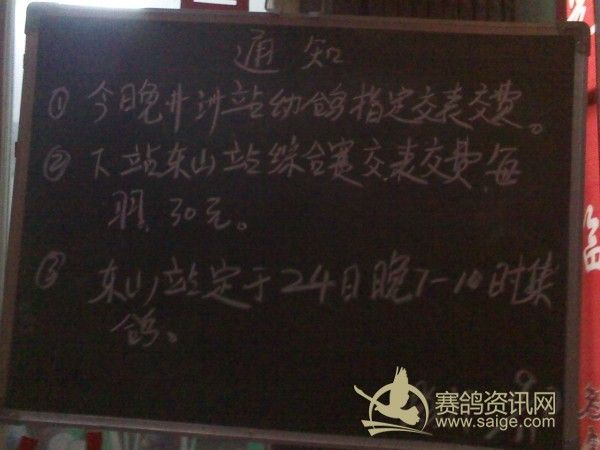 通知
① 今晚井洲站幼鸽指定交表交费。
② 下站东山站综合赛交表交费,每
羽30元。
③ 东山站定于24日晚7-10时集
鸽。
赛鸽资讯网
www.saige.com